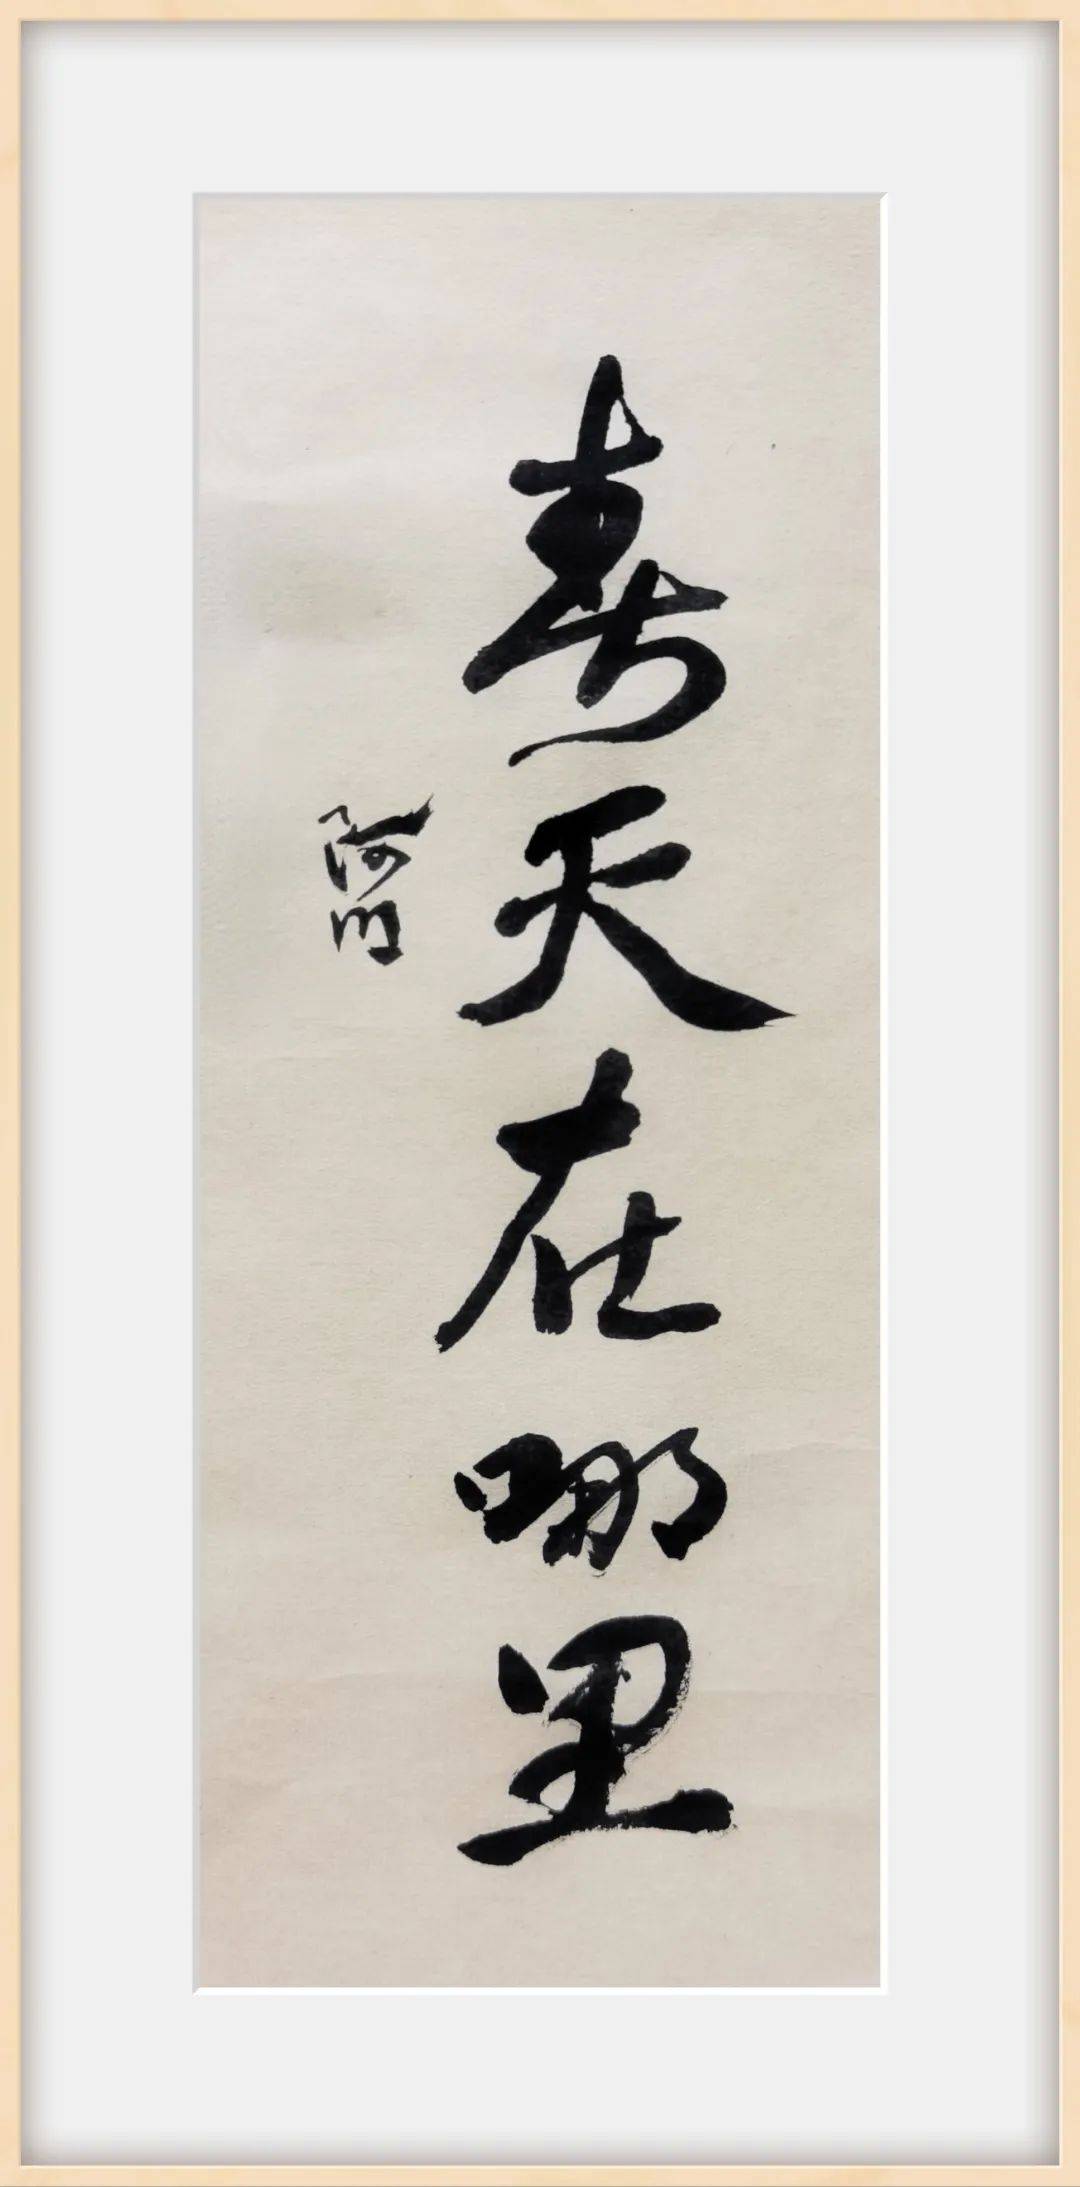 春天在哪里
阿